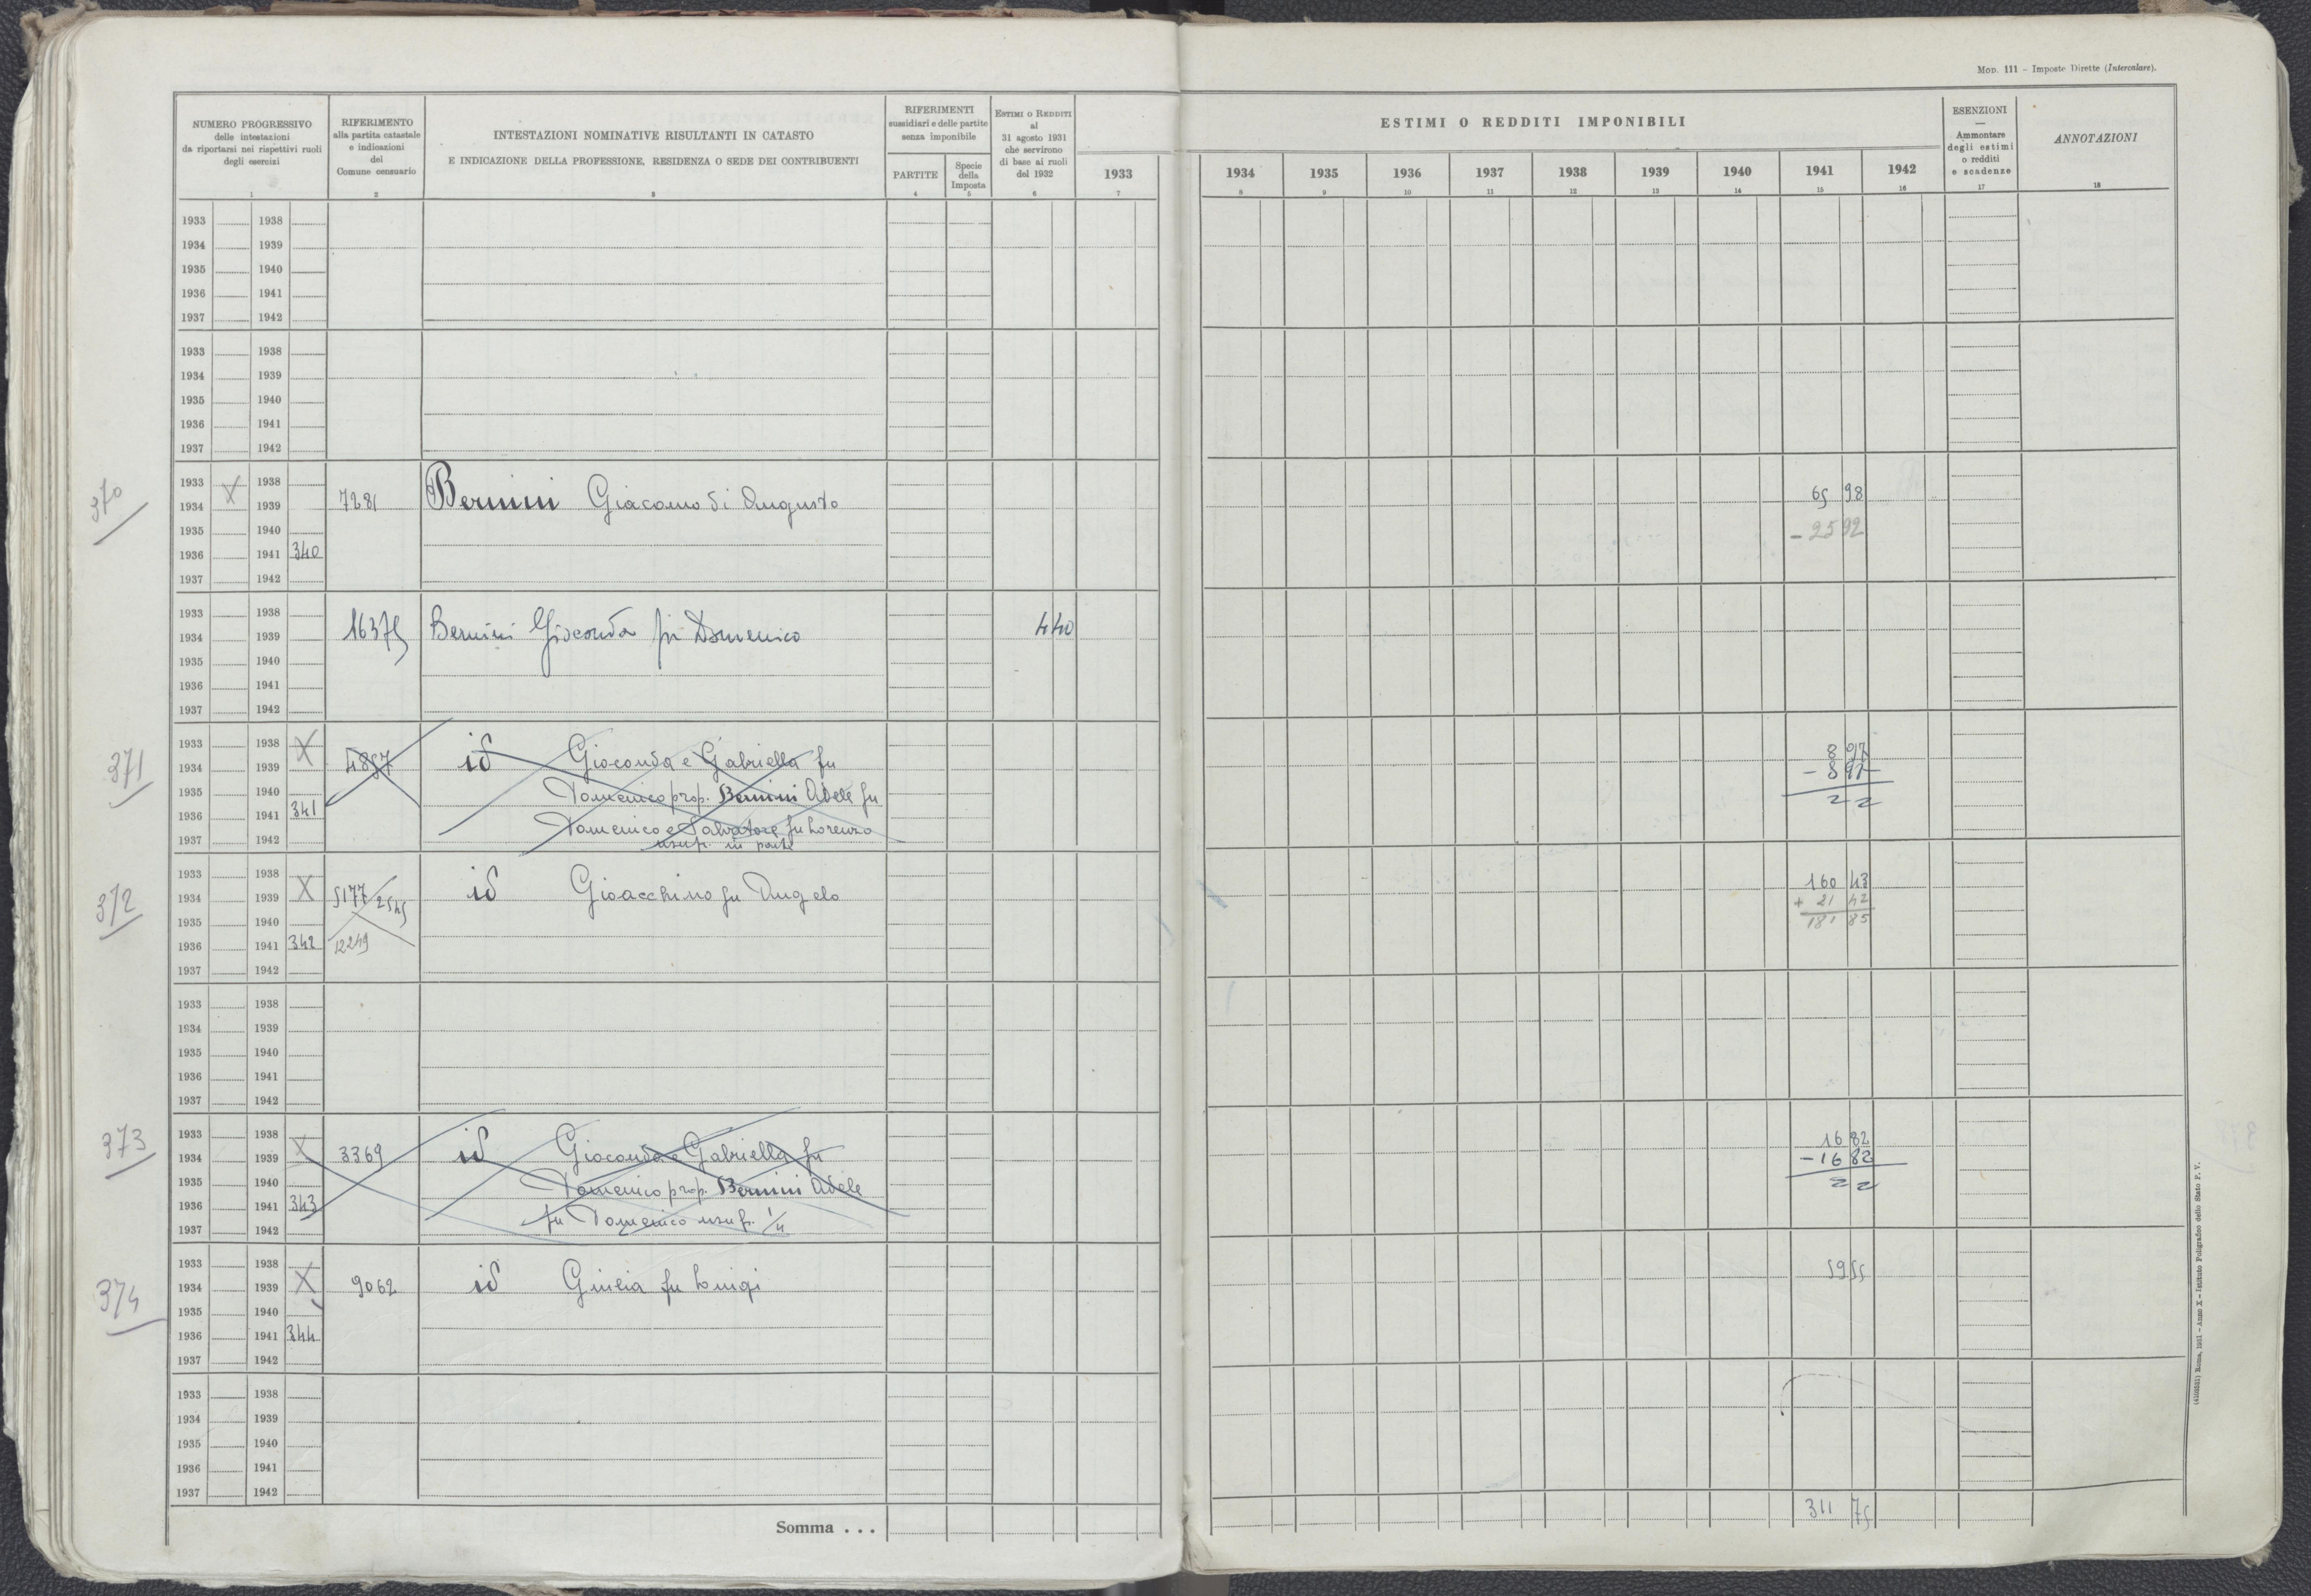 Mod. 111 – Imposte Dirette (Intercalare).
NUMERO PROGRESSIVO
delle intestazioni
da riportarsi nei rispettivi ruoli
degli esercizi
1
RIFERIMENTO
alla partita catastale
e indicazioni
del
Comune censuario
2
INTESTAZIONI NOMINATIVE RISULTANTI IN CATASTO
E INDICAZIONE DELLA PROFESSIONE, RESIDENZA O SEDE DEI CONTRIBUENTI
3
RIFERIMENTI
sussidiari e delle partite
senza imponibile
PARTITE
4
Specie
della
Imposta
5
ESTIMI O REDDITI
al
31 agosto 1931
che servirono
di base ai ruoli
del 1932
6
1933
7
ESTIMI O REDDITI IMPONIBILI
1934 1935 1936 1937 1938 1939 1940 1941 1942
8 9 10 11 12 13 14 15 16
ESENZIONI
—
Ammontare
degli estimi
o redditi
e scadenze
17
ANNOTAZIONI
18
1933 1938
1934 1939
1935 1940
1936 1941
1937 1942
1933 1938
1934 1939
1935 1940
1936 1941
1937 1942
370
1933 X 1938
1934 1939 7281 Bernini Giacomo di Augusto 65 98
1935 1940 - 25 92
1936 1941 340
1937 1942
1933 1938
1934 1939 16375 Bernini Gioconda fu Domenico 440
1935 1940
1936 1941
1937 1942
371
1933 1938 X 8 97
1934 1939 4857 id Gioconda e Gabriella fu - 8 97
1935 1940 Domenico prop. Bernini Adele fu
1936 1941 341 Domenico e Salvatore fu Lorenzo
1937 1942 usuf. in parte
372
1933 1938 X 160 43
1934 1939 5177/2545 id Gioacchino fu Angelo + 21 42
1935 1940 181 85
1936 1941 342 12249
1937 1942
1933 1938
1934 1939
1935 1940
1936 1941
1937 1942
373
1933 1938 X 16 82
1934 1939 3369 id Gioconda e Gabriella fu - 16 82
1935 1940 Domenico prop. Bernini Adele
1936 1941 343 fu Domenico usuf. 1/4
1937 1942
374
1933 1938 X 59 55
1934 1939 9062 id Giulia fu Luigi
1935 1940
1936 1941 344
1937 1942
1933 1938
1934 1939
1935 1940
1936 1941
1937 1942
Somma . . . 311 75
(4102251) Roma, 1931 – Anno X – Istituto Poligrafico dello Stato P. V.